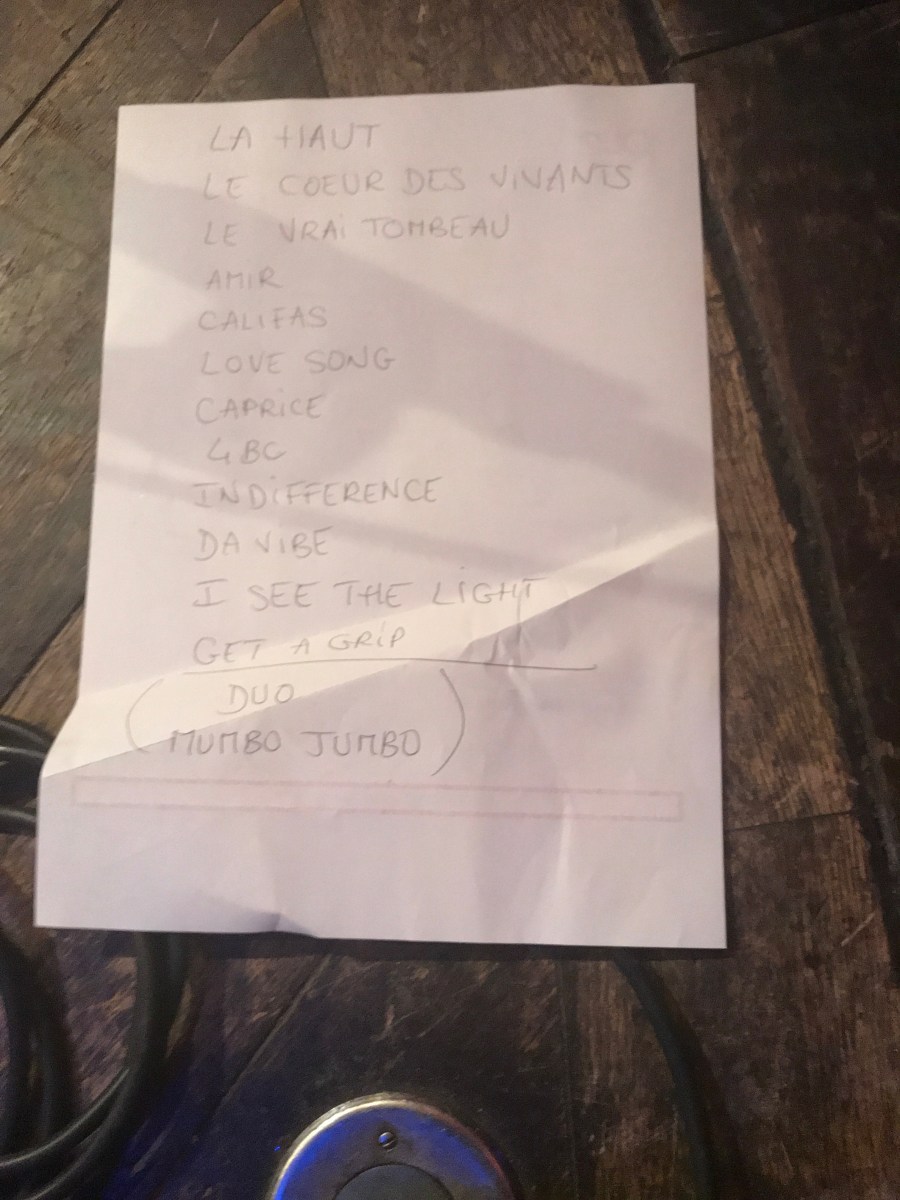 LA HAUT
LE COEUR DES ViVANTS
LE VRAi TOMBEAU
AMIR
CALIFAS
LOVE SONG
CAPRICE
4 BC
INDiFFERENCE
DA VIBE
I SEE THE LiGHT
GET A GRiP
(DUO
MUMBO JUMBO)